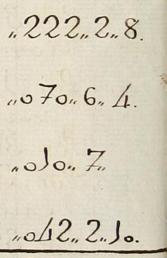 „222„2„8.
„070„6„4.
„010„7„
„042„2„10.